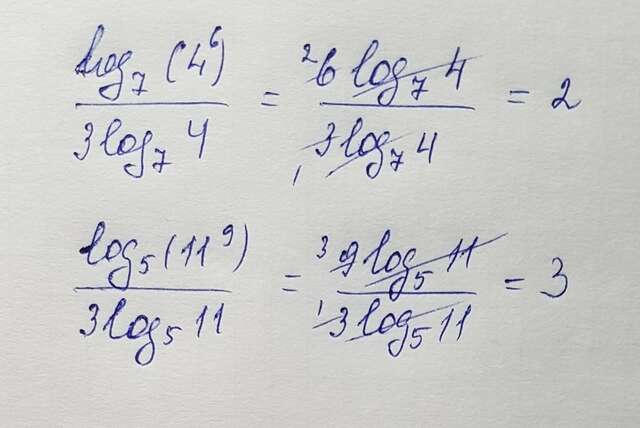 log₇(4⁶) / 3log₇4 = ²6log₇4 / ₁3log₇4 = 2
log₅(11⁹) / 3log₅11 = ³9log₅11 / ¹3log₅11 = 3